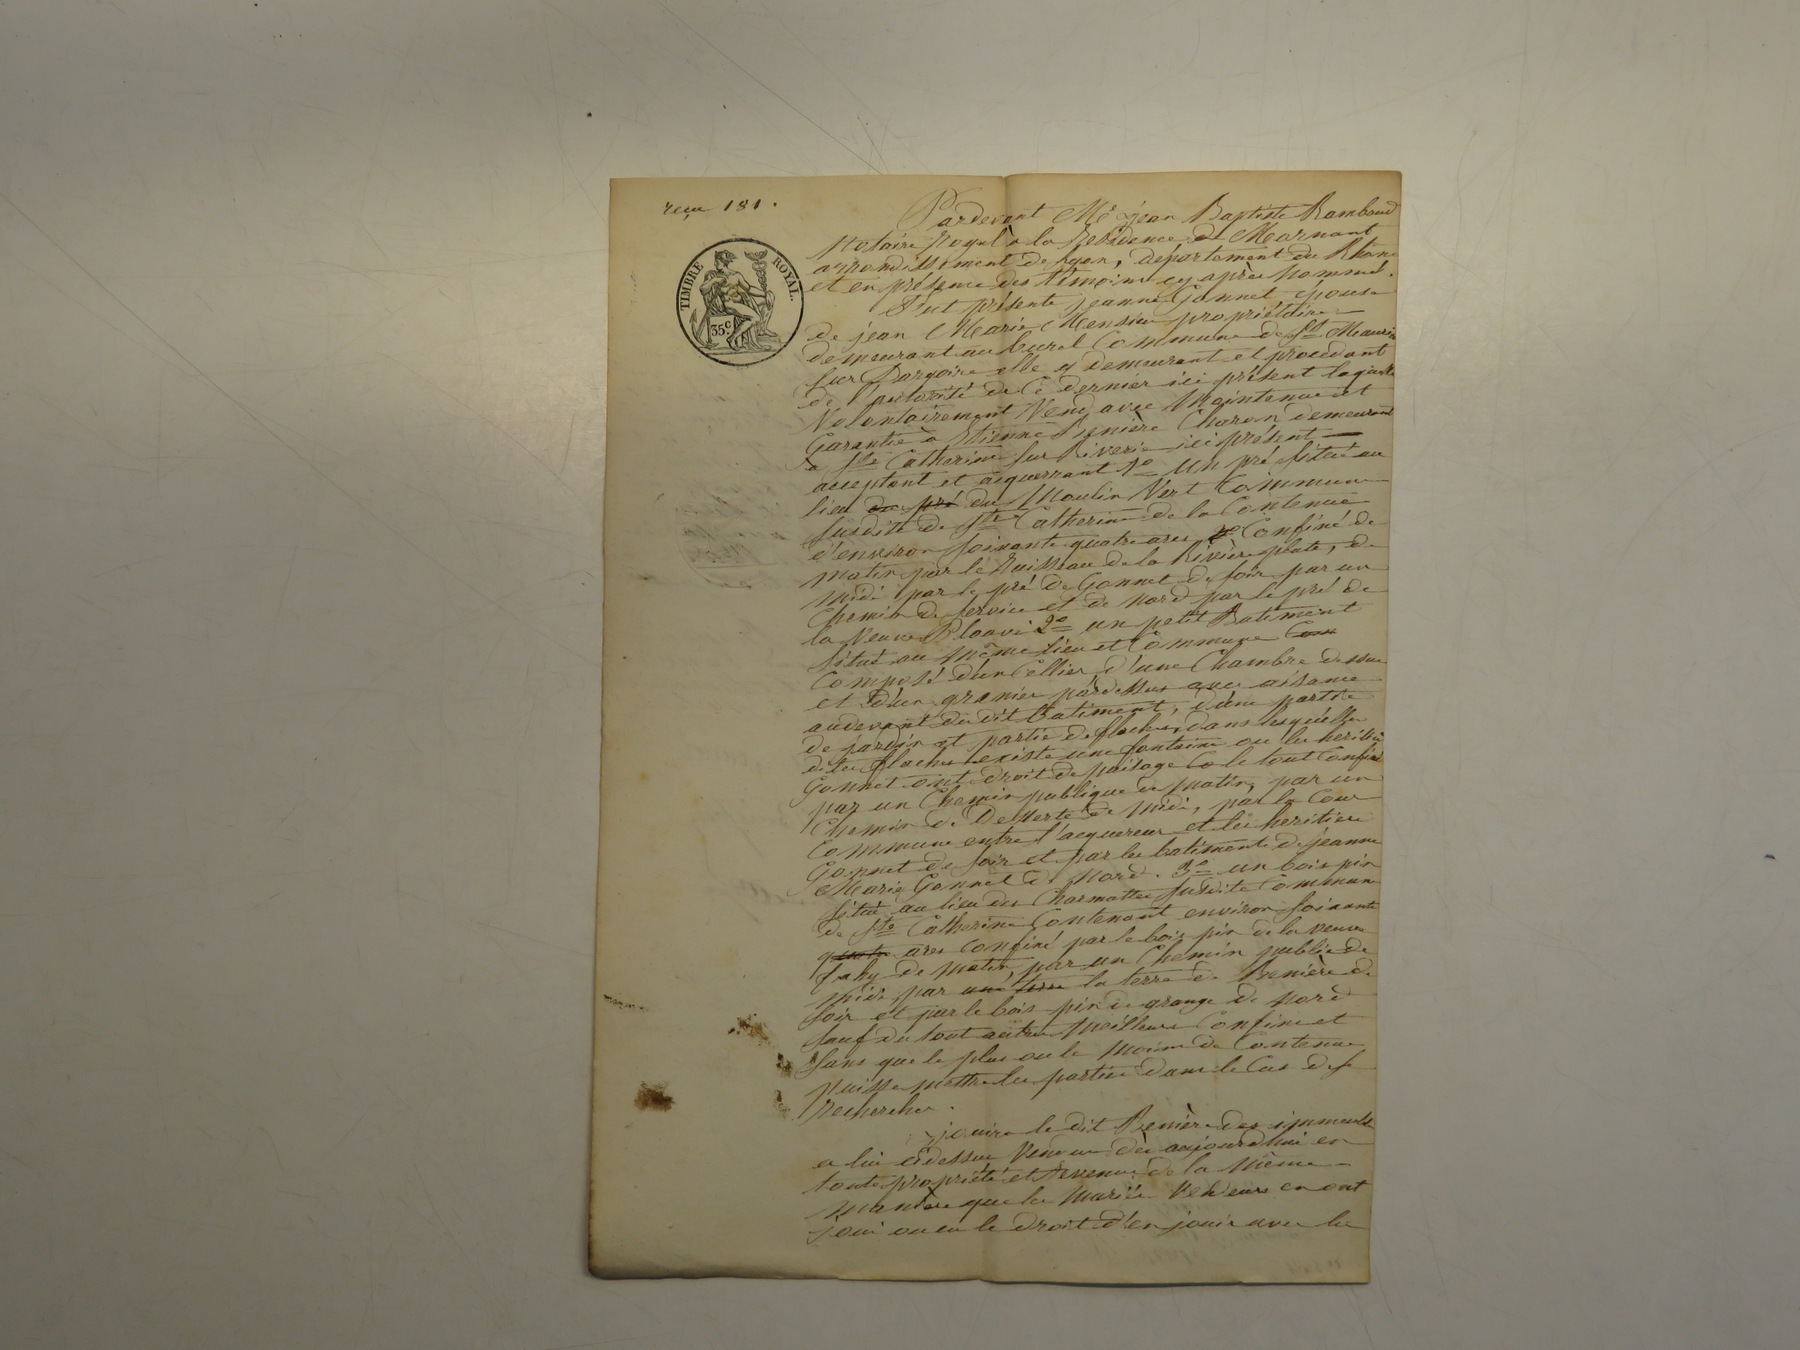 reçu 181.
TIMBRE ROYAL.
35c
Pardevant Me jean Baptiste Rambaud
Notaire Royal à la Résidence de Mornant
arrondissement de Lyon, département du Rhône
et en présence des témoins cy après nommés.
Fut présente jeanne Gonnet épouse
de jean Marie propriétaire
demeurant au Commune de St Maurice
sur Dargoire elle y demeurant et procédant
de l'autorité de ce dernier ici présent laquelle
Volontairement Vend avec Maintenue et
Garantie à Etienne Charon demeurant
à Ste Catherine sur Riverie ici présent
acceptant et acquerrant 1o Un pré situé au
lieu du pré du Moulin Vert Commune
susdite de Ste Catherine de la Contenue
d'environ soixante quatre ares Confiné de
matin par le Ruisseau de la Rivière plate, de
midi par le pré de Gonnet de soir par un
Chemin de service et de nord par le pré de
la Veuve 2o un petit Batiment
situé au même lieu et Commune Com
Composé d'un Cellier d'une Chambre dessus
et d'un grenier pardessus avec aisance
audevant du dit batiment, d'une partie
de jardin et partie de flaches, dans lesquelles
dites flaches existe une fontaine ou les heritiers
Gonnet ont droit de puisage le tout Confiné
par un Chemin publique de matin, par un
Chemin de Desserte de midi, par la Cour
Commune entre l'acquereur et les heritiers
Gonnet de soir et par les batiments de jeanne
Marie Gonnet de Nord. 3o un bois pin
situé au lieu des Charmattes susdite Commune
de Ste Catherine Contenant environ soixante
quatre ares Confiné par le bois pin de la veuve
de matin, par un Chemin public de
midi par une terre la terre de de
soir et par le bois pin de grange de Nord
sauf du tout autres meilleurs Confins et
sans que le plus ou le moins de Contenue
puisse mettre les parties dans le Cas de se
rechercher.
jouira le dit des immeubles
a lui cidessus Vendus dès aujourdhui en
toute propriété et revenus de la même
manière que les mariés Vendeurs en ont
joui ou eu le droit d'en jouir avec les